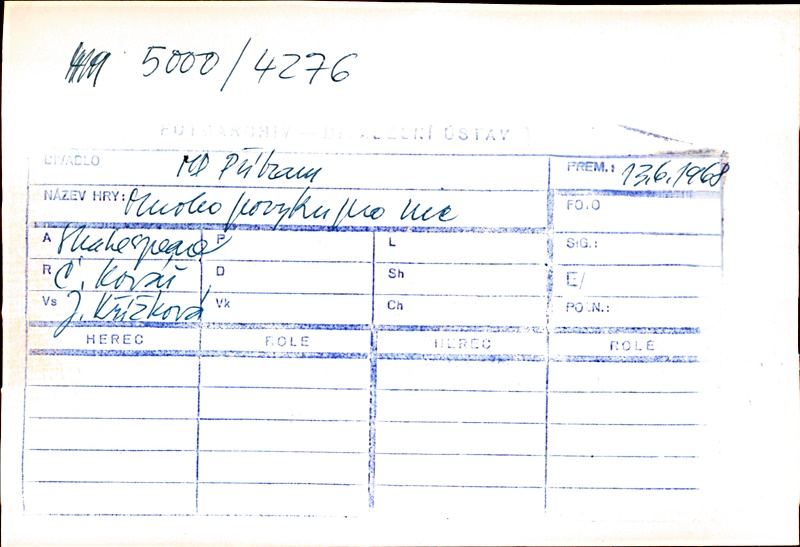 5000/4276
FOTOARCHIV – DIVADELNÍ ÚSTAV
DIVADLO MD Příbram PREM.: 13.6.1968
NÁZEV HRY: Mnoho povyku pro nic FOTO
A Shakespeare P L SIG.:
R Č. Kovář D Sh E/
Vs J. Křížková Vk Ch POZN.:
HEREC ROLE HEREC ROLE